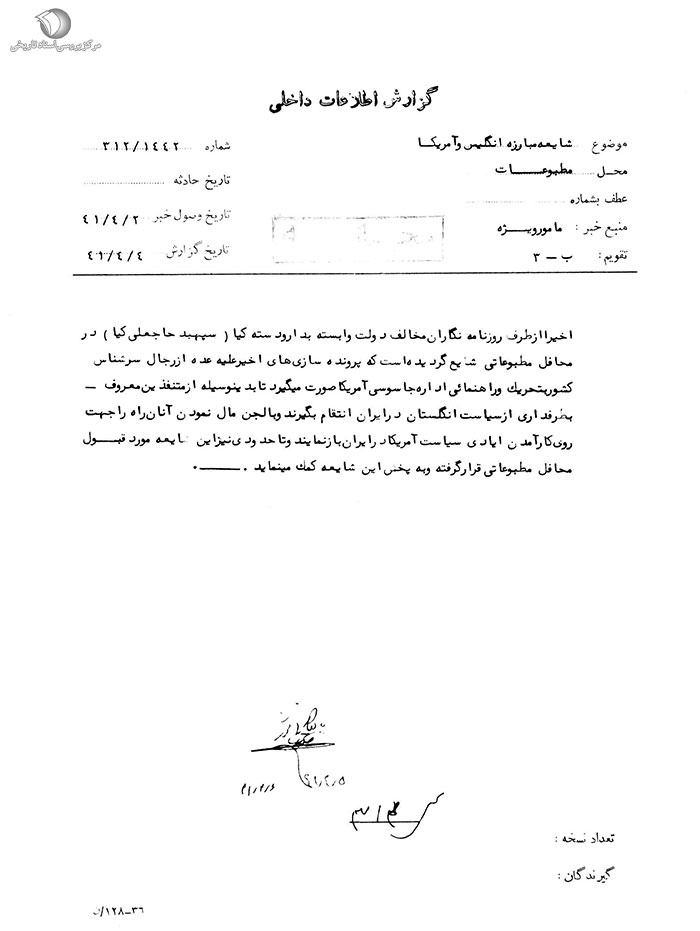 مرکز بررسی اسناد تاریخی
گزارش اطلاعات داخلی
موضوع شایعه مبارزه انگلیس وآمریکا
شماره ۳۱۲/۱٤٤۲
محل مطبوعات
تاریخ حادثه
عطف بشماره
تاریخ وصول خبر ٤۱/٤/۲
منبع خبر : مامورویژه
تاریخ گزارش ٤۱/٤/٤
تقویم : ب – ۳
اخیرا ازطرف روزنامه نگاران مخالف دولت وابسته بدارودسته کیا ( سپهبد حاجعلی کیا ) در
محافل مطبوعاتی شایع گردیده است که پرونده سازی های اخیرعلیه عده ازرجال سرشناس
کشوربتحریك وراهنمائی اداره جاسوسی آمریکاصورت میگیرد تابدینوسیله ازمتنفذین معروف –
بطرفداری ازسیاست انگلستان درایران انتقام بگیرند وبالجن مال نمودن آنان راه راجهت
روی کارآمدن ایادی سیاست آمریکادرایران بازنمایند وتاحدودی نیزاین شایعه مورد قبول
محافل مطبوعاتی قرارگرفته وبه پخش این شایعه کمك مینماید .
۳۱۲
تعداد نسخه :
گیرندگان :
۳٦–۱۲۸/ن